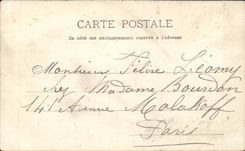 CARTE POSTALE
Ce côté est exclusivement réservé à l'adresse
Monsieur
chez Madame Bourdon
141 Avenue Malakoff
Paris